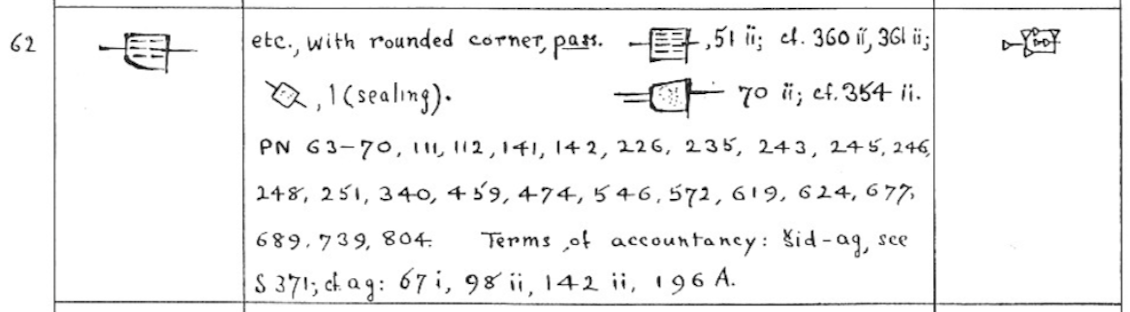 62 etc., with rounded corner, pass. , 51 ii; cf. 360 ii, 361 ii;
, 1 (sealing). 70 ii; cf. 354 ii.
PN 63-70, 111, 112, 141, 142, 226, 235, 243, 245, 246,
248, 251, 340, 459, 474, 546, 572, 619, 624, 677,
689, 739, 804. Terms of accountancy: šid-ag, see
S 371; cf. ag: 67 i, 98 ii, 142 ii, 196 A.